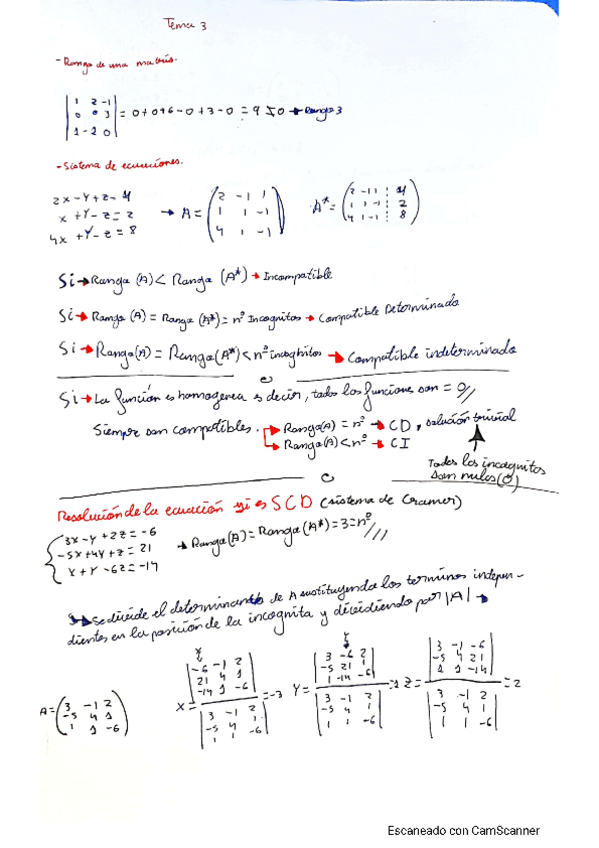 Tema 3
- Rango de una matriz.
| 1 2 -1 |
| 0 0 3 | = 0+0+6-0+3-0 = 9 ≠ 0 → Rango 3
| 1 -1 0 |
- Sistema de ecuaciones.
2x-y+z=4
x+y-z=2
4x+y-z=8
→ A = ( 2 -1 1 / 1 1 -1 / 4 1 -1 )
A* = ( 2 -1 1 ⋮ 4 / 1 1 -1 ⋮ 2 / 4 1 -1 ⋮ 8 )
Si → Rango (A) < Rango (A*) → Incompatible
Si → Rango (A) = Rango (A*) = nº Incognitos → Compatible Determinado
Si → Rango(A) = Rango(A*) < nº incognitos → Compatible indeterminado
Si → La función es homogenea es decir, todos los funciones son = 0//
Siempre son compatibles. → Rango(A) = nº → CD, solución trivial
→ Rango(A) < nº → CI
Todos los incognitos
son nulos (0)
Resolución de la ecuación si es SCD (sistema de Cramer)
3x-y+2z=-6
-5x+4y+z=21
x+y-6z=-14
→ Rango(A) = Rango(A*) = 3 = nº ///
→ se divide el determinante de A sustituyendo los terminos indepen-
dientes en la posición de la incognita y dividiendo por |A| →
A = ( 3 -1 2 / -5 4 1 / 1 1 -6 )
X = | -6 -1 2 / 21 4 1 / -14 1 -6 | / | 3 -1 2 / -5 4 1 / 1 1 -6 | = -3
Y = | 3 -6 2 / -5 21 1 / 1 -14 -6 | / | 3 -1 2 / -5 4 1 / 1 1 -6 |
Z = | 3 -1 -6 / -5 4 21 / 1 1 -14 | / | 3 -1 2 / -5 4 1 / 1 1 -6 | = 2
Escaneado con CamScanner